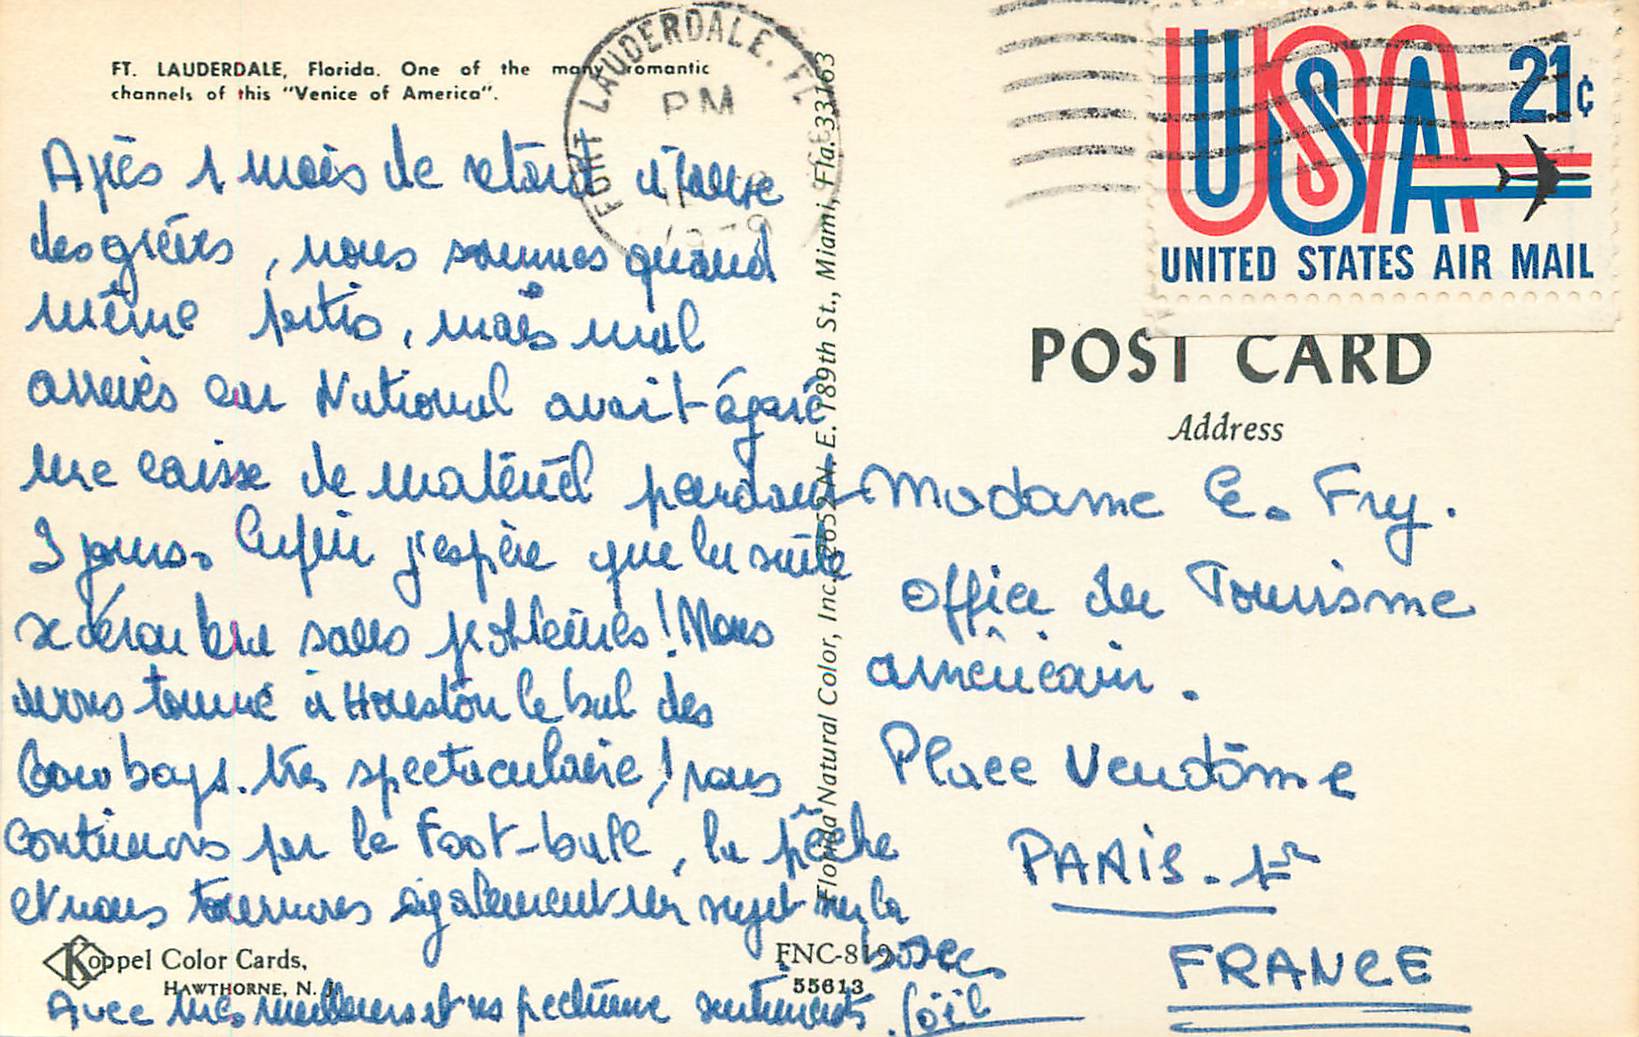 FT. LAUDERDALE, Florida. One of the many romantic
channels of this "Venice of America".
FORT LAUDERDALE, FL
PM
USA 21¢
UNITED STATES AIR MAIL
POST CARD
Address
Après 1 mois de retard à cause
des grèves, nous sommes quand
même partis, mais mal
arrivés car National avait égaré
une caisse de matériel pendant
3 jours. Enfin j'espère que la suite
se déroulera sans problèmes! Nous
avons tourné à Houston le bal des
Cowboys. très spectaculaire! nous
continuons par le Foot-ball, la pêche
et nous tournons également un sujet sur la
Avec mes meilleurs et sentiments. Joël
Madame E. Fry.
Office du Tourisme
américain.
Place Vendôme
PARIS. 1er
FRANCE
Florida Natural Color, Inc., 2652 N. E. 189th St., Miami, Fla. 33163
Koppel Color Cards,
HAWTHORNE, N. J.
FNC-819
55613